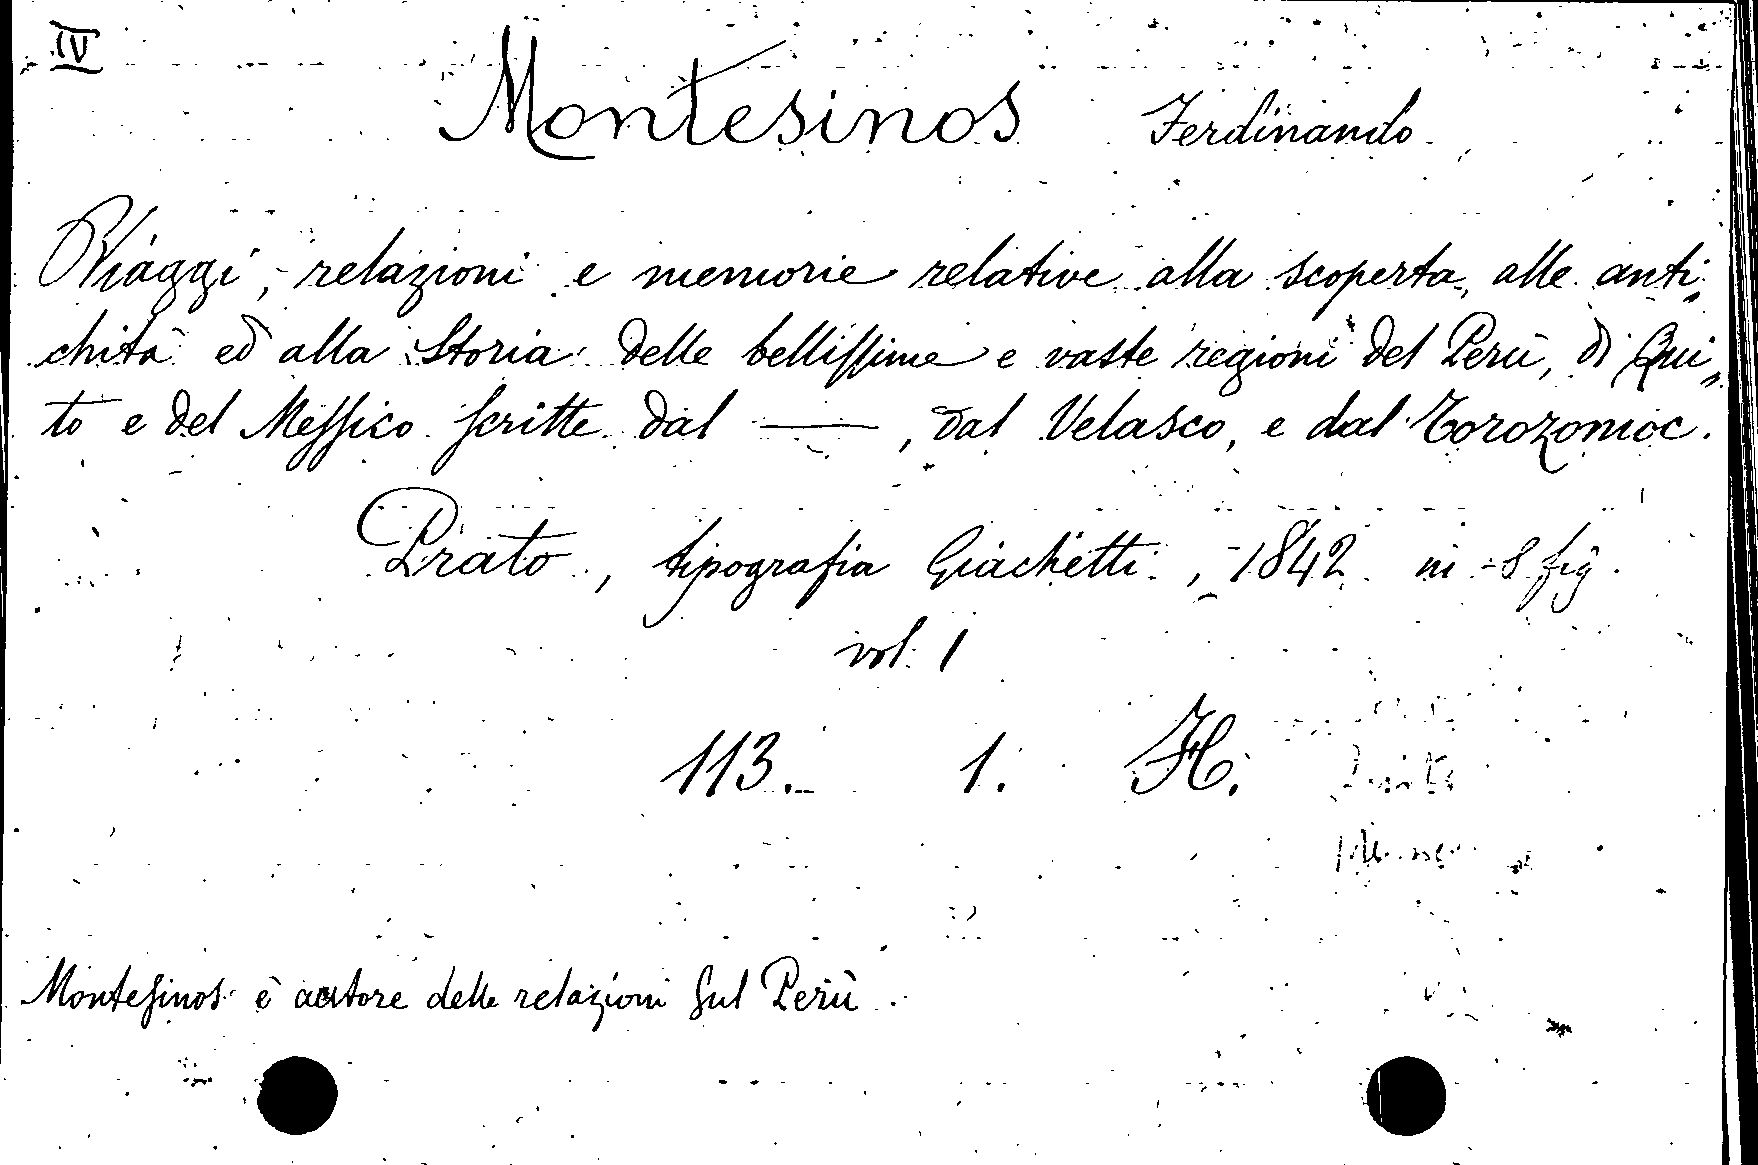 IV
Montesinos Ferdinando
Viaggi, relazioni e memorie relative alla scoperta, alle anti„
chità ed alla Storia delle bellissime e vaste regioni del Perù, di Qui„
to e del Messico scritte dal —— , dal Velasco, e dal Torozomoc.
Prato, tipografia Giachetti, 1842 in-8 fig.
vol. 1
113. 1. H.
Montesinos è autore delle relazioni sul Perù.